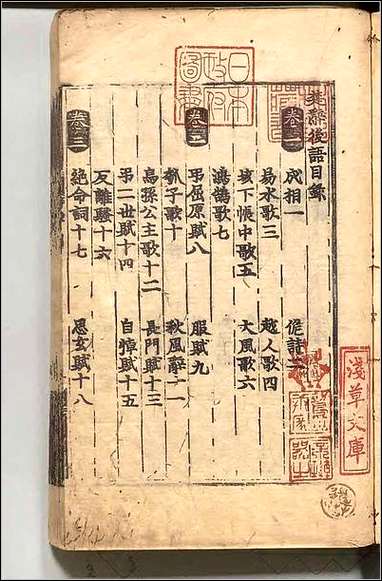 楚辭後語目録
卷一
成相一 佹詩二
易水歌三 越人歌四
垓下帳中歌五 大風歌六
鴻鵠歌七
卷二
弔屈原賦八 服賦九
瓠子歌十 秋風辭十一
烏孫公主歌十二 長門賦十三
弔二世賦十四 自悼賦十五
反離騷十六
卷三
絶命詞十七 思玄賦十八
日本政府圖書
淺草文庫